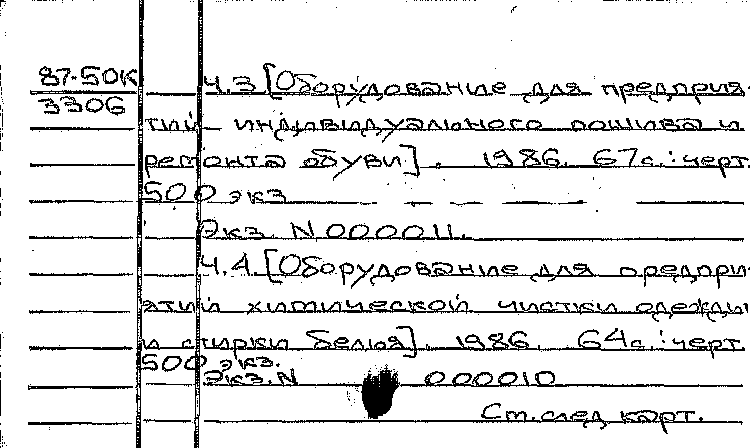 87-50К Ч.3 [Оборудование для предприя-
3306
тий индивидуального пошива и
ремонта обуви]. 1986. 67с.: черт.
500 экз
Экз. N 000011.
Ч.4.[Оборудование для предпри-
ятий химической чистки одежды
и стирки белья]. 1986. 64с.: черт.
500 экз.
Экз. N 000010
См. след карт.